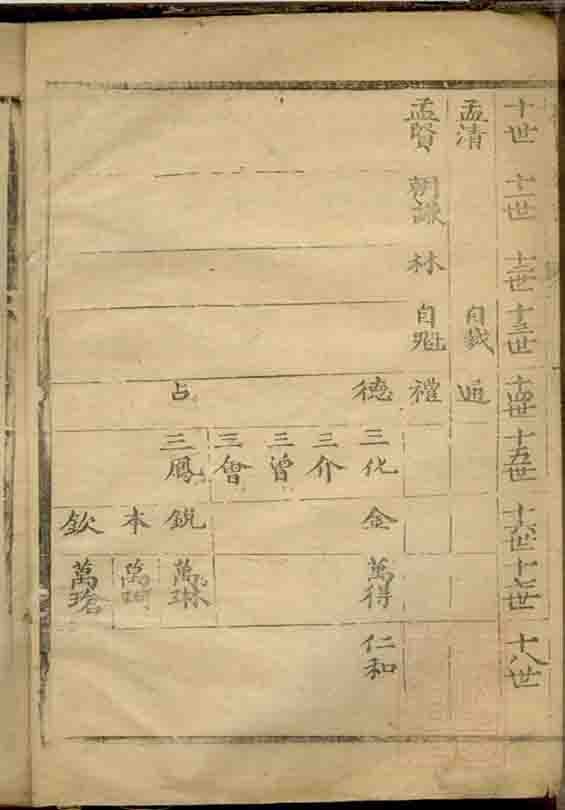 十世
十一世
十二世
十三世
十四世
十五世
十六世
十七世
十八世
孟清
自
通
孟賢
朝謙
林
自魁
禮
德
三化
金
萬得
仁和
三介
三曾
三會
占
三鳳
銳
萬琳
本
萬珂
欽
萬瑲